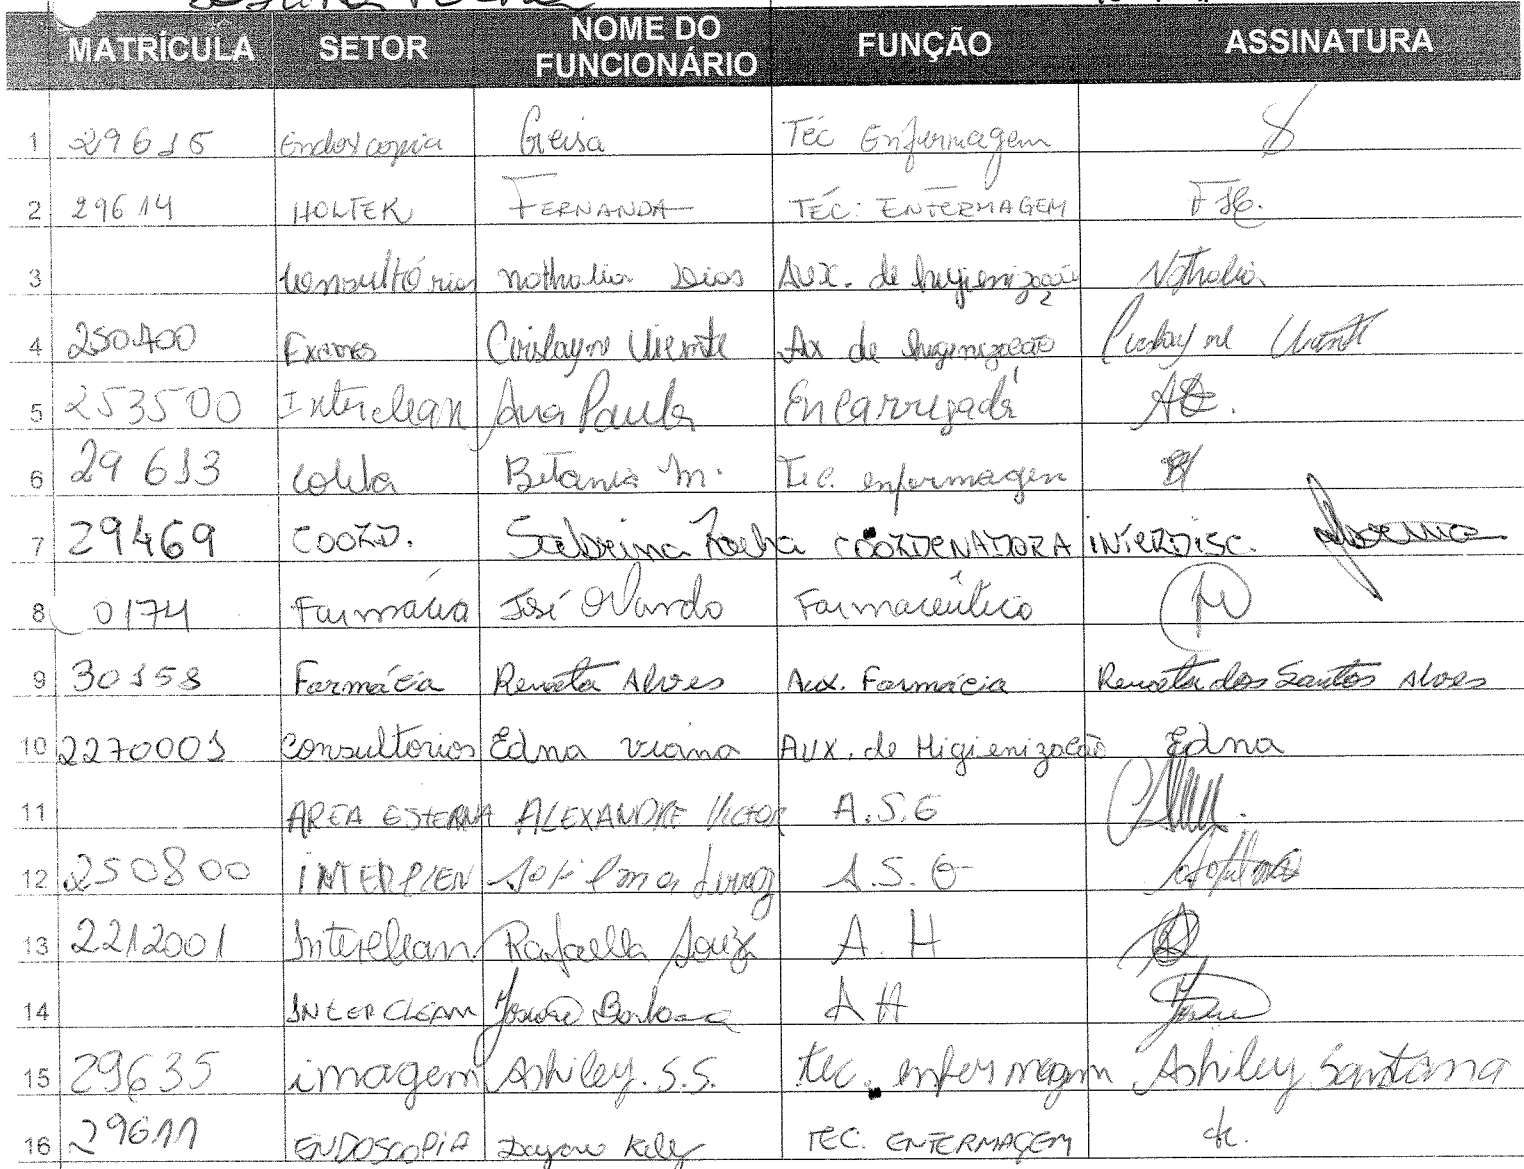 MATRÍCULA SETOR NOME DO FUNCIONÁRIO FUNÇÃO ASSINATURA
1 29615 Endoscopia Geisa Téc Enfermagem
2 29614 HOLTER FERNANDA TÉC. ENFERMAGEM
3 Consultórios Nathalia Dias AUX. de higienização Nathalia
4 250400 Exames Crislayne Vicente Ax de higienização Crislayne Vicente
5 253500 Interclean Ana Paula Encarregada
6 29613 Coleta Betania M. Tec. enfermagem
7 29469 COORD. Sabrina Rocha COORDENADORA INTERDISC.
8 0174 Farmácia José Orlando Farmacêutico
9 30158 Farmácia Renata Alves Aux. Farmácia Renata dos Santos Alves
10 2270001 Consultorios Edna Viana AUX. de Higienização Edna
11 AREA ESTERNA ALEXANDRE VICTOR A.S.G
12 250800 A.S.G
13 2212001 Interclean Rafaella Souza A.H
14 INTERCLEAN AH
15 29635 imagem Ashiley. S.S. tec. enfermagem Ashiley Santana
16 29611 ENDOSCOPIA Dayane Kely TEC. ENFERMAGEM